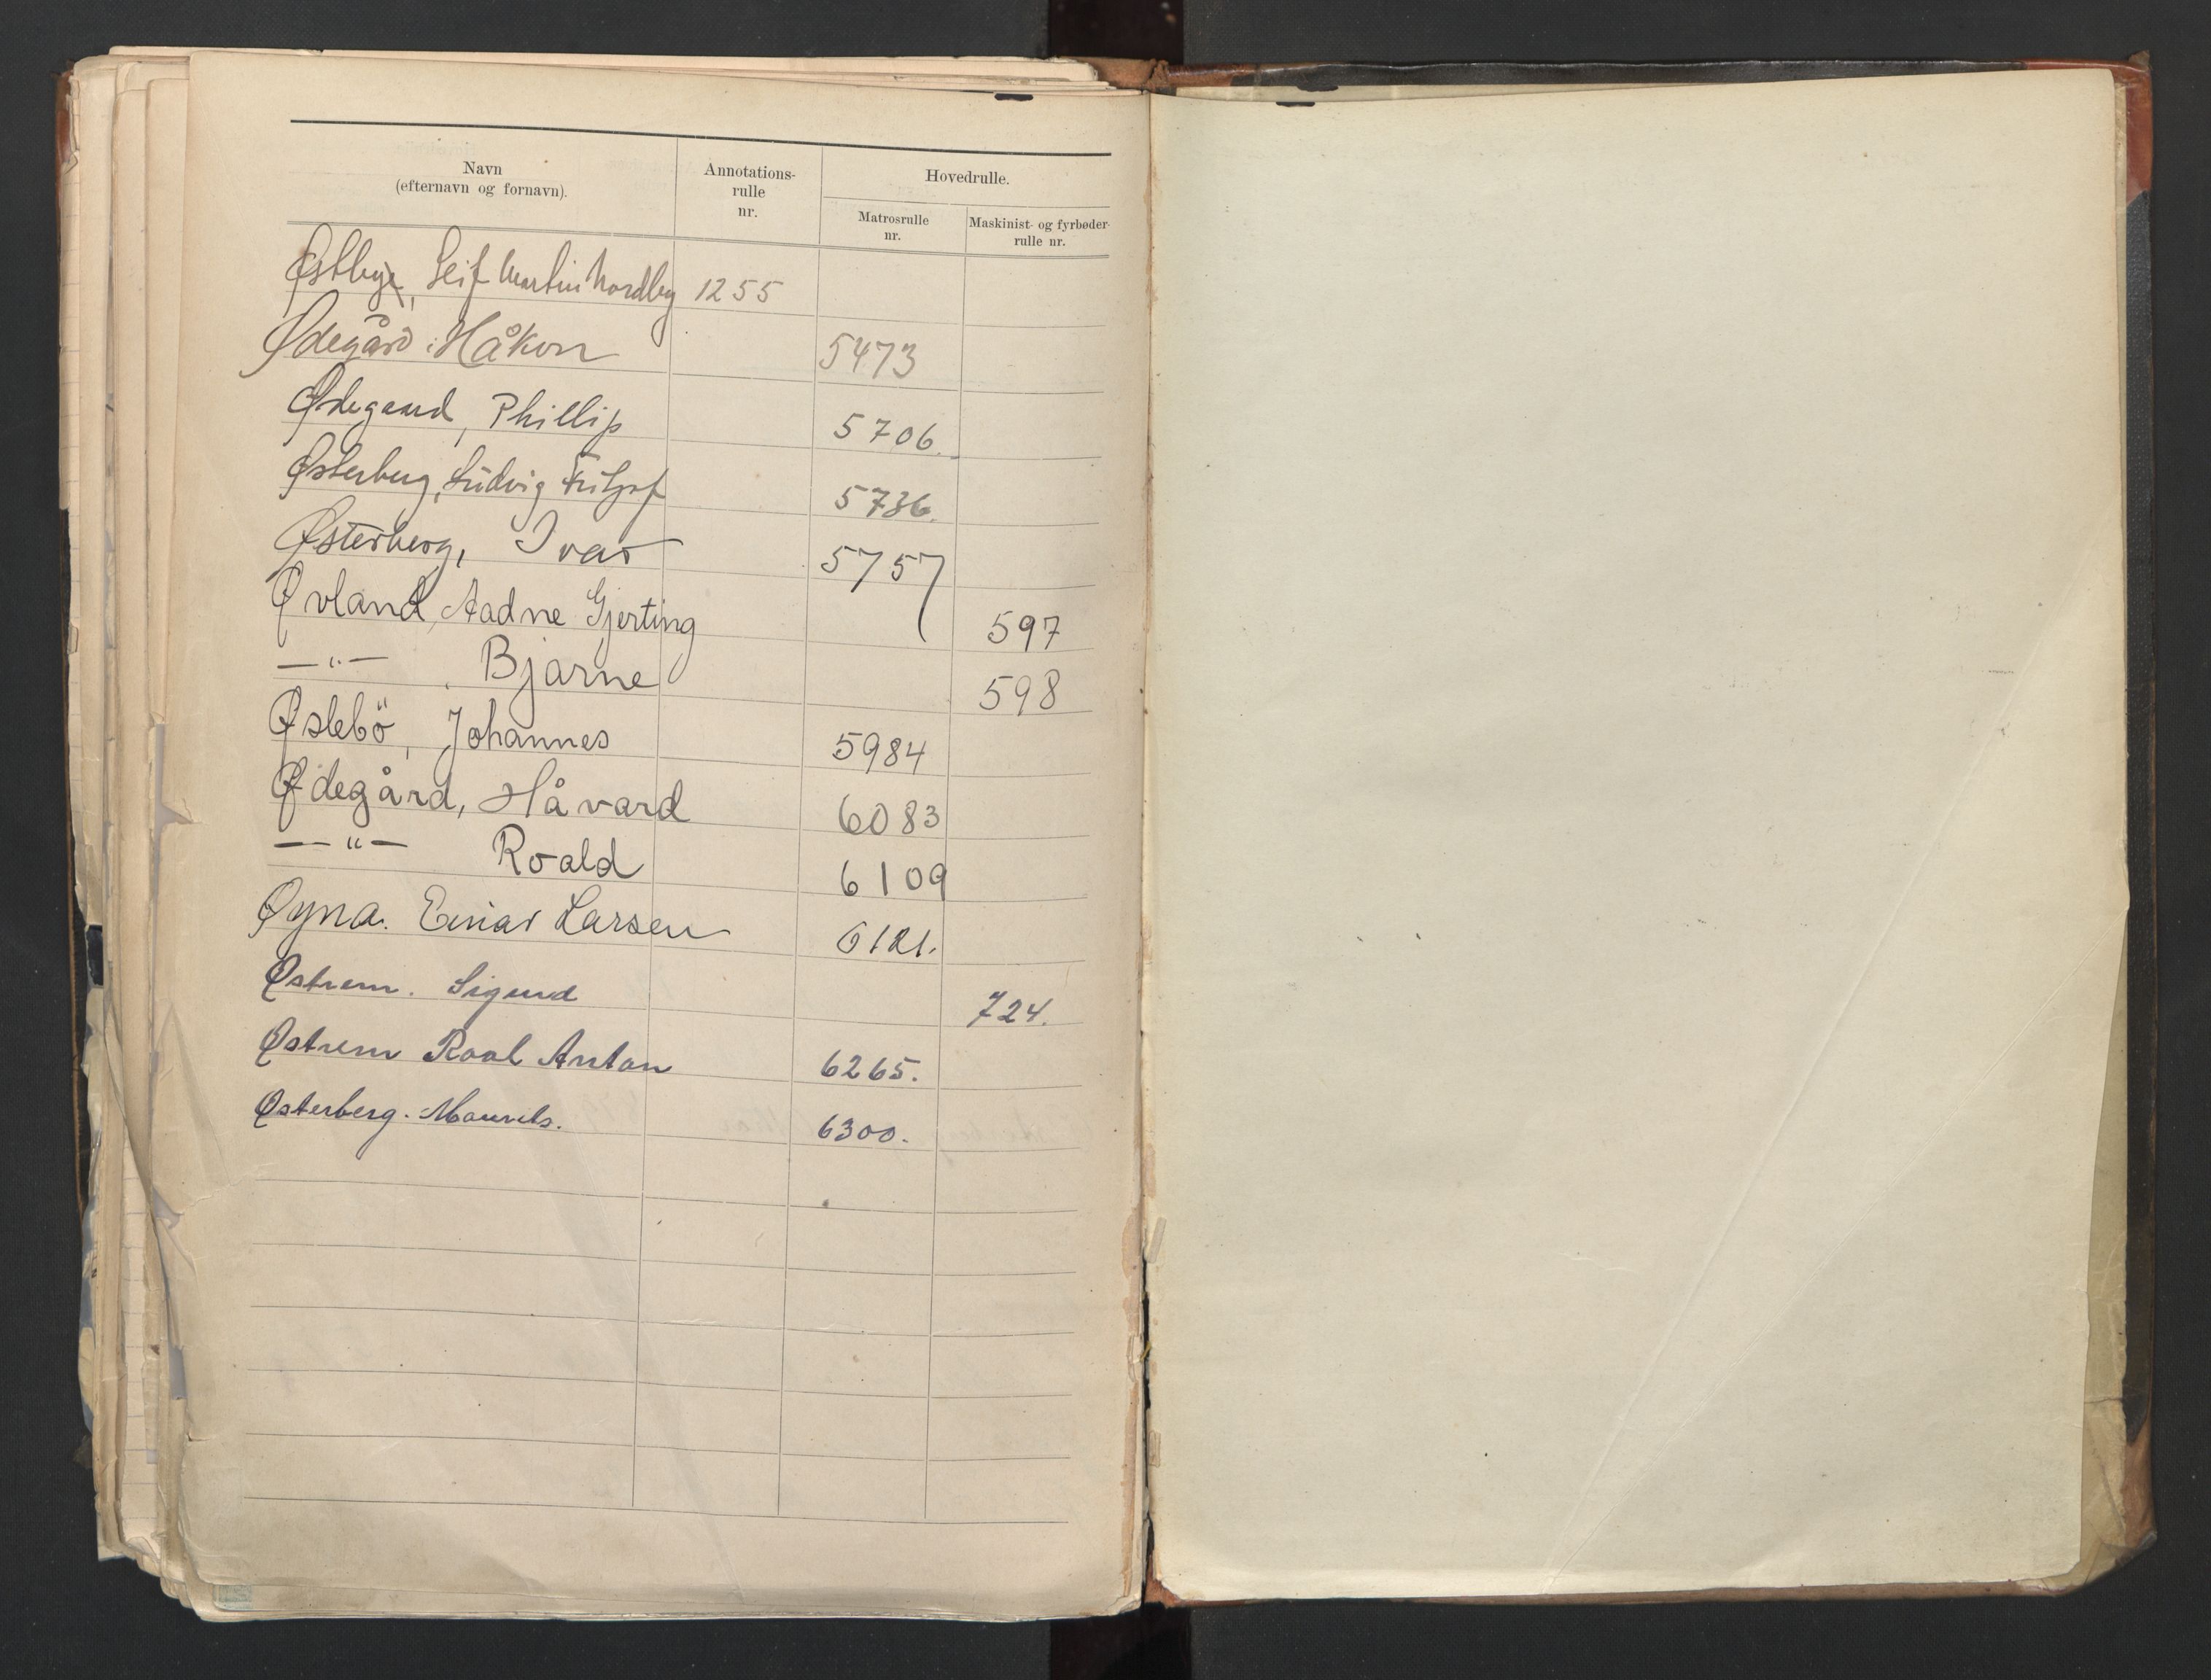 Navn
(efternavn og fornavn).
Annotations-
rulle
nr.
Hovedrulle.
Matrosrulle
nr.
Maskinist- og fyrbøder-
rulle nr.
Østbye, Leif Martin Nordby 1255
Ødegård Håkon 5473
Ødegaard, Phillip 5706.
Østerberg, Ludvig Fritjof 5736.
Østerberg, Ivar 5757
Øvland, Aadne Gjerting 597
—"— Bjarne 598
Øslebö, Johannes 5984
Ødegård, Håvard 6083
—"— Roald 6109
Øyna. Einar Larsen 6121.
Østrem. Sigurd 724.
Østrem Roal Anton 6265.
Østerberg. 6300.